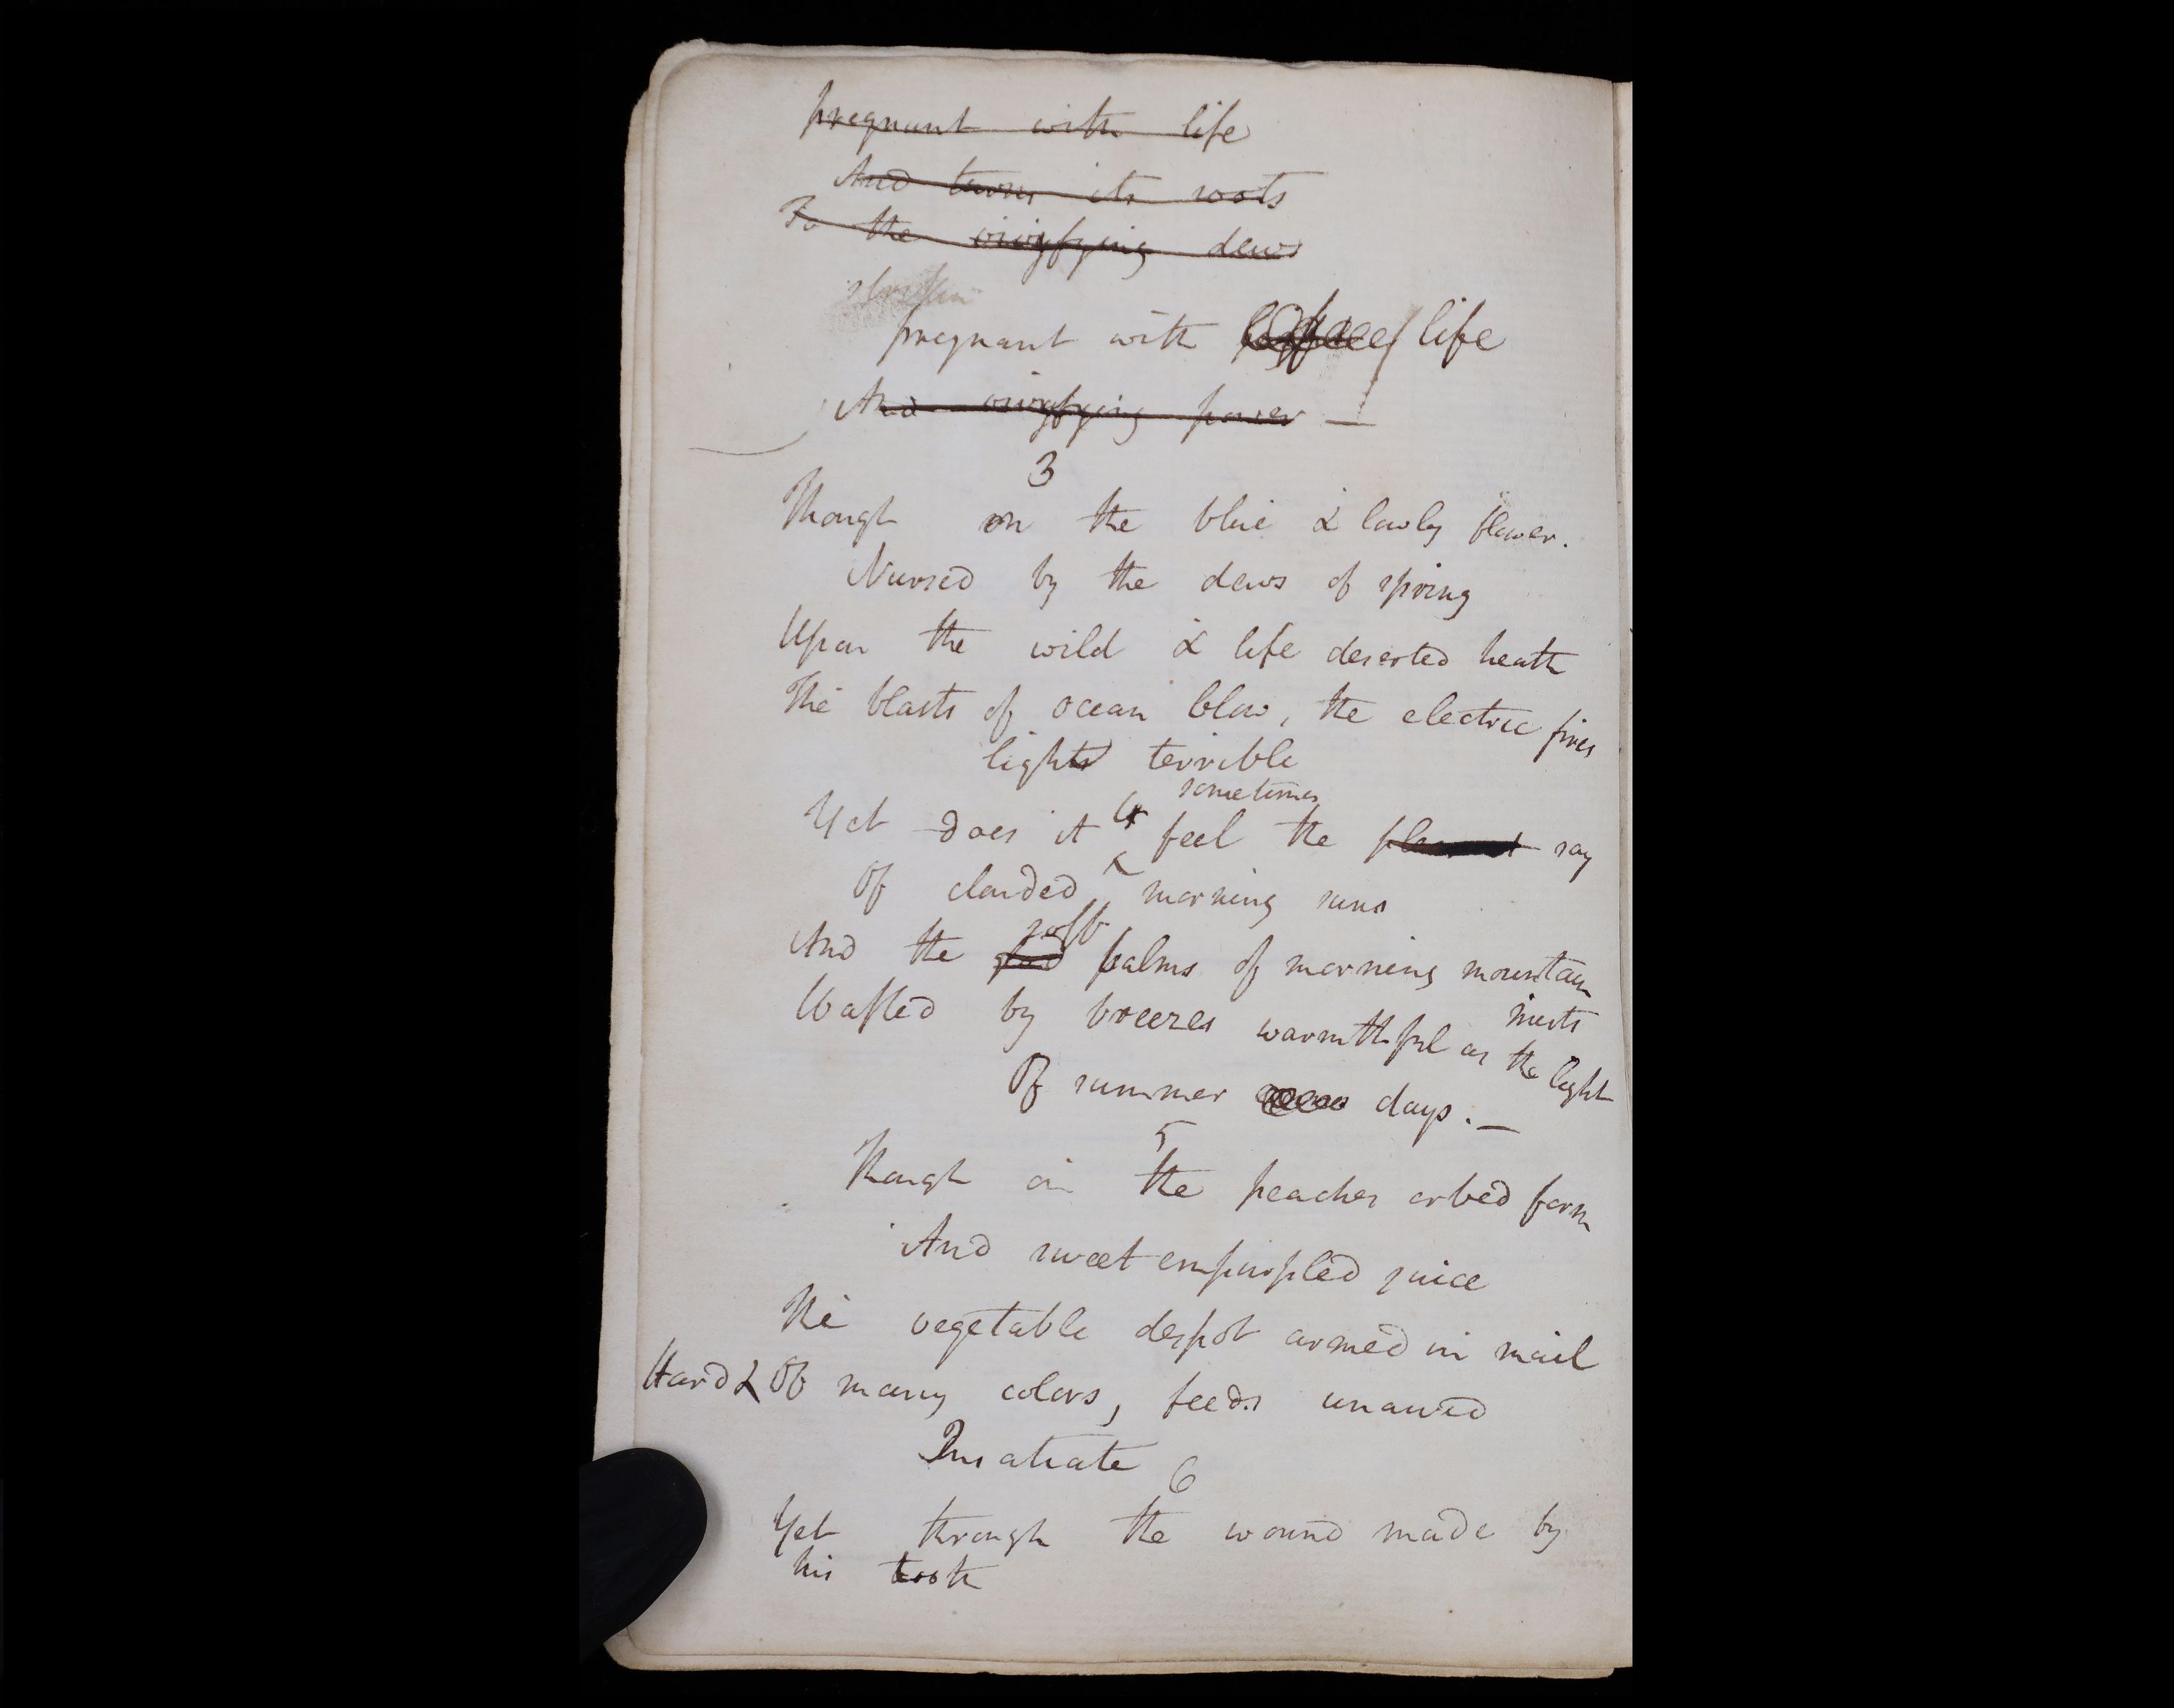 pregnant with life
And turns its roots
To the vivyfying dews
pregnant with life
And vivyfying power —
3
Though on the blue & lowly flower.
Nursed by the dews of spring
Upon the wild & life deserted heath
The blasts of ocean blow, the electric fires
lights terrible
4 sometimes
Yet does it feel the pleasant ray
Of clouded morning suns
soft
And the balms of morning mountain
mists
Wafted by breezes warmthful as the light
Of summer days. —
5
Though on the peaches orbed form
And sweet empurpled juice
The vegetable despot armed in mail
Hard & Of many colors, feeds unawed
Insatiate
6
Yet through the wound made by
his tooth